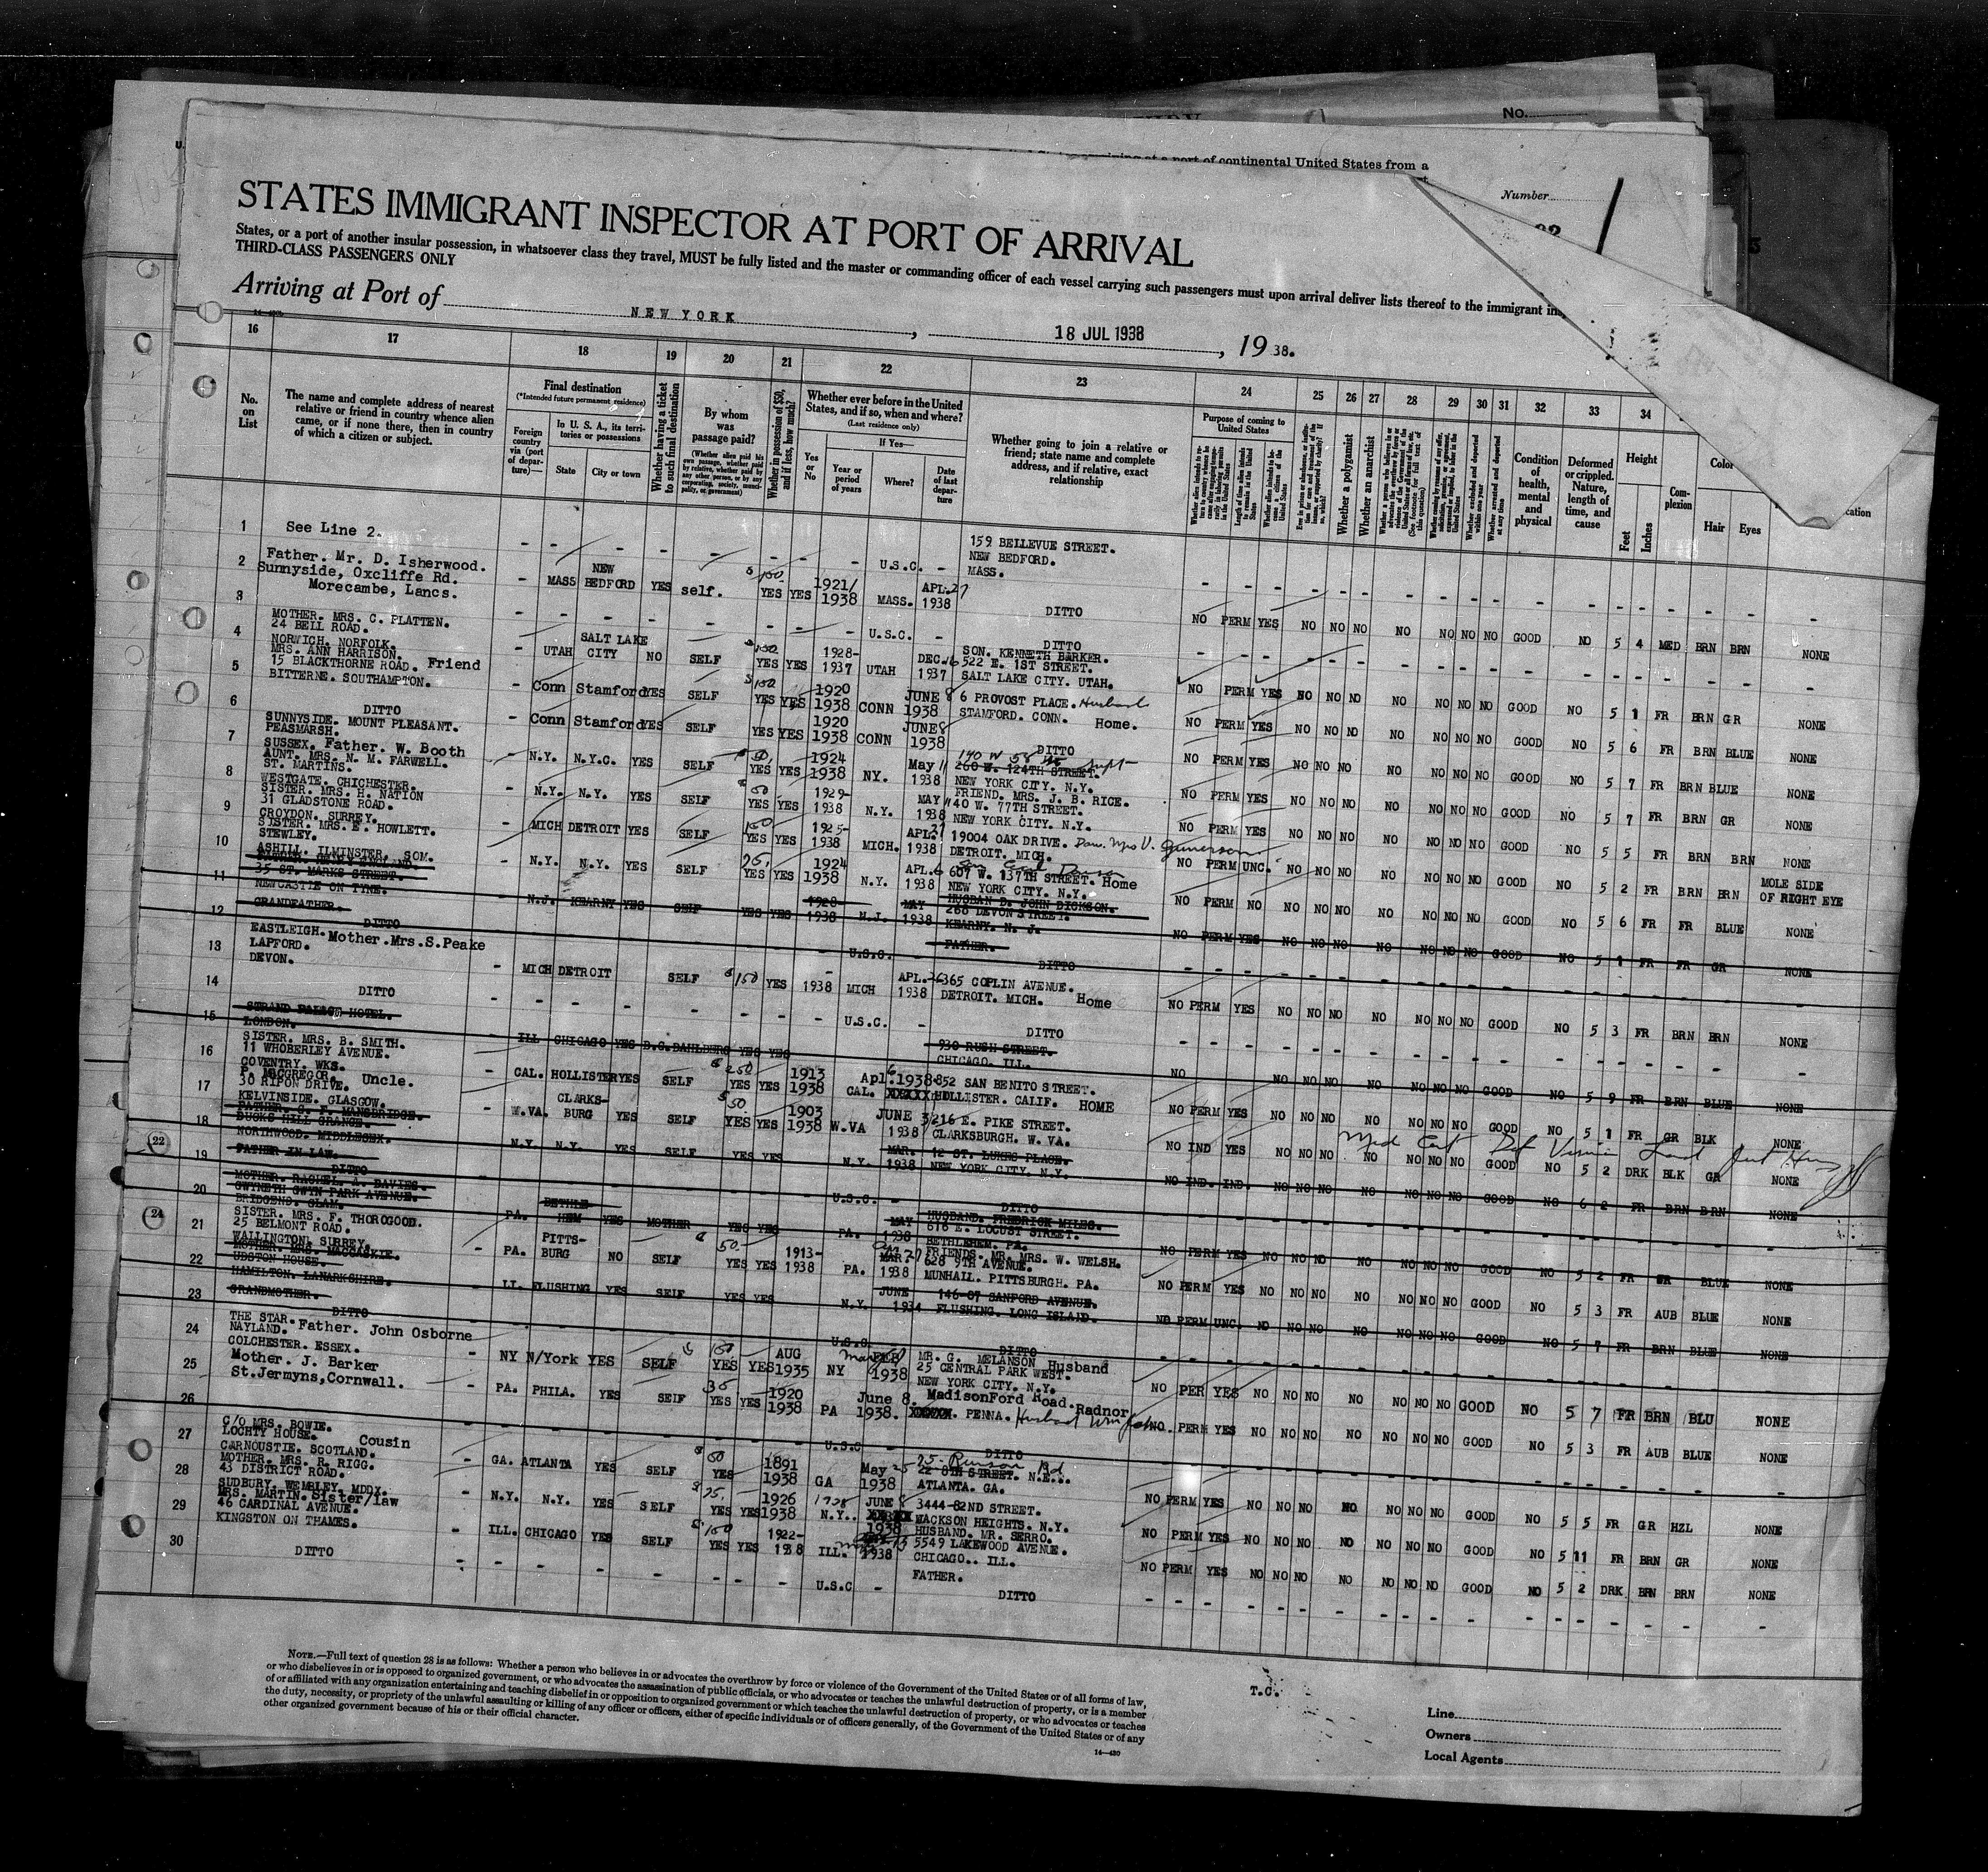 No.
at a port of continental United States from a
Number
STATES IMMIGRANT INSPECTOR AT PORT OF ARRIVAL
States, or a port of another insular possession, in whatsoever class they travel, MUST be fully listed and the master or commanding officer of each vessel carrying such passengers must upon arrival deliver lists thereof to the immigrant
THIRD-CLASS PASSENGERS ONLY
Arriving at Port of NEW YORK, 18 JUL 1938, 1938.
16 17 18 19 20 21 22 23 24 25 26 27 28 29 30 31 32 33 34
No. on List
The name and complete address of nearest relative or friend in country whence alien came, or if none there, then in country of which a citizen or subject.
Final destination
(*Intended future permanent residence)
Foreign country via (port of departure)—
In U. S. A., its territories or possessions
State
City or town
Whether having a ticket to such final destination
By whom was passage paid?
(Whether alien paid his own passage, whether paid by relative, whether paid by any other person, or by any corporation, society, municipality, or government)
Whether in possession of $50, and if less, how much?
Whether ever before in the United States, and if so, when and where?
(Last residence only)
If Yes—
Yes or No
Year or period of years
Where?
Date of last departure
Whether going to join a relative or friend; state name and complete address, and if relative, exact relationship
Purpose of coming to United States
Whether a polygamist
Whether an anarchist
Condition of health, mental and physical
Deformed or crippled. Nature, length of time, and cause
Height
Feet
Inches
Complexion
Hair
Eyes
1 See Line 2. - - - - - - - U.S.C. - 159 BELLEVUE STREET. NEW BEDFORD. MASS.
2 Father. Mr. D. Isherwood. Sunnyside, Oxcliffe Rd. Morecambe, Lancs. - MASS NEW BEDFORD YES self. $150 YES YES 1921/1938 MASS. APL.27 1938 DITTO NO PERM YES NO NO NO NO NO NO NO GOOD NO 5 4 MED BRN BRN NONE
3 - - - - - - - U.S.C. - DITTO
4 MOTHER. MRS. C. PLATTEN. 24 BELL ROAD. NORWICH. NORFOLK. UTAH SALT LAKE CITY NO SELF $150 YES YES 1928-1937 UTAH DEC.16 1937 SON. KENNETH BARKER. 522 E. 1ST STREET. SALT LAKE CITY. UTAH. NO PERM YES NO NO NO NO NO NO NO GOOD NO 5 1 FR BRN GR NONE
5 MRS. ANN HARRISON. 15 BLACKTHORNE ROAD. Friend BITTERNE. SOUTHAMPTON. - Conn Stamford YES SELF $150 YES YES 1920 1938 CONN JUNE 8 1938 6 PROVOST PLACE. Husband STAMFORD. CONN. Home. NO PERM YES NO NO NO NO NO NO NO GOOD NO 5 6 FR BRN BLUE NONE
6 DITTO - Conn Stamford YES SELF YES YES 1920 1938 CONN JUNE 8 1938 DITTO NO PERM YES NO NO NO NO NO NO NO GOOD NO 5 7 FR BRN BLUE NONE
7 SUNNYSIDE. MOUNT PLEASANT. PEASMARSH. SUSSEX. Father. W. Booth - N.Y. N.Y.C. YES SELF $50 YES YES 1924 1938 NY. May 11 1938 140 W 58 260 W. 124TH STREET. NEW YORK CITY. N.Y. NO PERM YES NO NO NO NO NO NO NO GOOD NO 5 7 FR BRN GR NONE
8 AUNT. MRS. N. M. FARWELL. ST. MARTINS. WESTGATE. CHICHESTER. - N.Y. N.Y. YES SELF $50 YES YES 1929-1938 N.Y. MAY 11 1938 FRIEND. MRS. J. B. RICE. 40 W. 77TH STREET. NEW YORK CITY. N.Y. NO PERM YES NO NO NO NO NO NO NO GOOD NO 5 5 FR BRN BRN NONE
9 SISTER. MRS. H. NATION 31 GLADSTONE ROAD. CROYDON. SURREY. - MICH DETROIT YES SELF 150 YES YES 1925-1938 MICH. APL. 1938 19004 OAK DRIVE. DETROIT. MICH. NO PERM UNC. NO NO NO NO NO NO NO GOOD NO 5 2 FR BRN BRN MOLE SIDE OF RIGHT EYE
10 SISTER. MRS. E. HOWLETT. STEWLEY. ASHILL. ILMINSTER. SOM. - N.Y. N.Y. YES SELF 75. YES YES 1924 1938 N.Y. APL.6 1938 607 W. 137TH STREET. Home NEW YORK CITY. N.Y. NO PERM NO NO NO NO NO NO NO NO GOOD NO 5 6 FR FR BLUE NONE
11 35 ST. MARKS STREET. NEWCASTLE ON TYNE. N.J. KEARNY YES SELF YES YES 1928- 1938 N.J. MAY 1938 HUSBAN D. JOHN DICKSON. 268 DEVON STREET. KEARNY. N. J. NO PERM YES NO NO NO NO NO NO NO GOOD NO 5 1 FR FR GR NONE
12 GRANDFATHER. DITTO U.S.C. - FATHER. DITTO
13 EASTLEIGH. Mother. Mrs. S. Peake LAPFORD. DEVON. - MICH DETROIT SELF $150 YES - 1938 MICH APL.26 1938 365 COPLIN AVENUE. DETROIT. MICH. Home NO PERM YES NO NO NO NO NO NO NO GOOD NO 5 3 FR BRN BRN NONE
14 DITTO - - - - - - - U.S.C. - DITTO
15 STRAND PALACE HOTEL. LONDON. ILL CHICAGO YES B.G.DAHLBERG YES YES 930 RUSH STREET. CHICAGO. ILL. NO NO NO NO NO NO NO NO GOOD NO 5 9 FR BRN BLUE NONE
16 SISTER. MRS. B. SMITH. 11 WHOBERLEY AVENUE. COVENTRY. WKS. - CAL. HOLLISTER YES SELF $250 YES YES 1913 1938 CAL. Apl. 6 1938 852 SAN BENITO STREET. HOLLISTER. CALIF. HOME NO PERM YES NO NO NO NO NO NO NO GOOD NO 5 1 FR GR BLK NONE
17 P. MACGREGOR. Uncle. 30 RIPON DRIVE. KELVINSIDE. GLASGOW. - W.VA. CLARKS-BURG YES SELF $50. YES YES 1903 1938 W.VA JUNE 3 1938 216 E. PIKE STREET. CLARKSBURGH. W. VA. NO IND YES NO NO NO NO NO NO NO GOOD NO 5 2 DRK BLK GR NONE
Med Cert Def Vision
18 FATHER. G. F. MANSBRIDGE. DUCKS HILL GRANGE. NORTHWOOD. MIDDLESEX. N.Y. N.Y. YES SELF YES YES N.Y. MAR. 1938 12 ST. LUKES PLACE. NEW YORK CITY. N.Y. NO IND. IND. NO NO NO NO NO NO NO GOOD NO 6 2 FR BRN BRN NONE
22
19 FATHER IN LAW. DITTO U.S.C. - DITTO
20 MOTHER. RACHEL. A. DAVIES. GWYNETH GWYN PARK AVENUE. BRIDGEND. GLAM. PA. BETHLE-HEM YES MOTHER YES YES PA. MAY 1938 HUSBAND. FREDRICK MILES. 616 E. LOCUST STREET. BETHLEHEM. PA. NO PERM YES NO NO NO NO NO NO NO GOOD NO 5 2 FR FR BLUE NONE
24
21 SISTER. MRS. F. THOROGOOD. 25 BELMONT ROAD. WALLINGTON. SURREY. - PA. PITTS-BURG NO SELF $50. YES YES 1913-1938 PA. MAR. 27 1938 FRIENDS. MR. MRS. W. WELSH. 628 9TH AVENUE. MUNHALL. PITTSBURGH. PA. NO PERM YES NO NO NO NO NO NO NO GOOD NO 5 3 FR AUB BLUE NONE
22 MOTHER. MRS. MACCASKIE. UDSTON HOUSE. HAMILTON. LANARKSHIRE. LI. FLUSHING YES SELF YES YES N.Y. JUNE 1934 146-07 SANFORD AVENUE. FLUSHING. LONG ISLAND. NO PERM UNC. NO NO NO NO NO NO NO GOOD NO 5 7 FR BRN BLUE NONE
23 GRANDMOTHER. DITTO U.S.C. DITTO
24 THE STAR. Father. John Osborne NAYLAND. COLCHESTER. ESSEX. - NY N/York YES SELF $150. YES YES AUG 1935 NY 1938 MR. G. MELANSON Husband 25 CENTRAL PARK WEST. NEW YORK CITY. N.Y. NO PER YES NO NO NO NO NO NO NO GOOD NO 5 7 FR BRN BLU NONE
25 Mother. J. Barker St.Jermyns,Cornwall. - PA. PHILA. YES SElF 35. YES YES 1920 1938 PA June 8. 1938. MadisonFord Road. Radnor. PENNA. Husband NO. PERM YES NO NO NO NO NO NO NO GOOD NO 5 3 FR AUB BLUE NONE
26 - - - - - - - U.S.C - DITTO
27 C/O MRS. BOWIE. LOCHTY HOUSE. Cousin CARNOUSTIE. SCOTLAND. - GA. ATLANTA YES SELF $50 YES 1891 1938 GA May 25 1938 22 8TH STREET. N.E... ATLANTA. GA. NO PERM YES NO NO NO NO NO NO NO GOOD NO 5 5 FR GR HZL NONE
28 MOTHER. MRS. R. RIGG. 43 DISTRICT ROAD. SUDBURY. WEMBLEY. MDDX. - N.Y. N.Y. YES SELF $25. YES YES 1926 1938 N.Y.. JUNE 8 1938 3444-82ND STREET. JACKSON HEIGHTS. N.Y. NO PERM YES NO NO NO NO NO NO NO GOOD NO 5 11 FR BRN GR NONE
29 MRS. MARTIN. Sister/law 46 CARDINAL AVENUE. KINGSTON ON THAMES. - ILL. CHICAGO YES SELF $150 YES YES 1922-1938 ILL. 1938 HUSBAND. MR. SERRO. 5549 LAKEWOOD AVENUE. CHICAGO.. ILL. NO PERM YES NO NO NO NO NO NO NO GOOD NO 5 2 DRK BRN BRN NONE
30 DITTO - - - - - - - U.S.C - FATHER. DITTO
NOTE.—Full text of question 28 is as follows: Whether a person who believes in or advocates the overthrow by force or violence of the Government of the United States or of all forms of law,
or who disbelieves in or is opposed to organized government, or who advocates the assassination of public officials, or who advocates or teaches the unlawful destruction of property, or is a member
of or affiliated with any organization entertaining and teaching disbelief in or opposition to organized government or which teaches the unlawful destruction of property, or who advocates or teaches
the duty, necessity, or propriety of the unlawful assaulting or killing of any officer or officers, either of specific individuals or of officers generally, of the Government of the United States or of any
other organized government because of his or their official character.
14—430
T.C.
Line
Owners
Local Agents